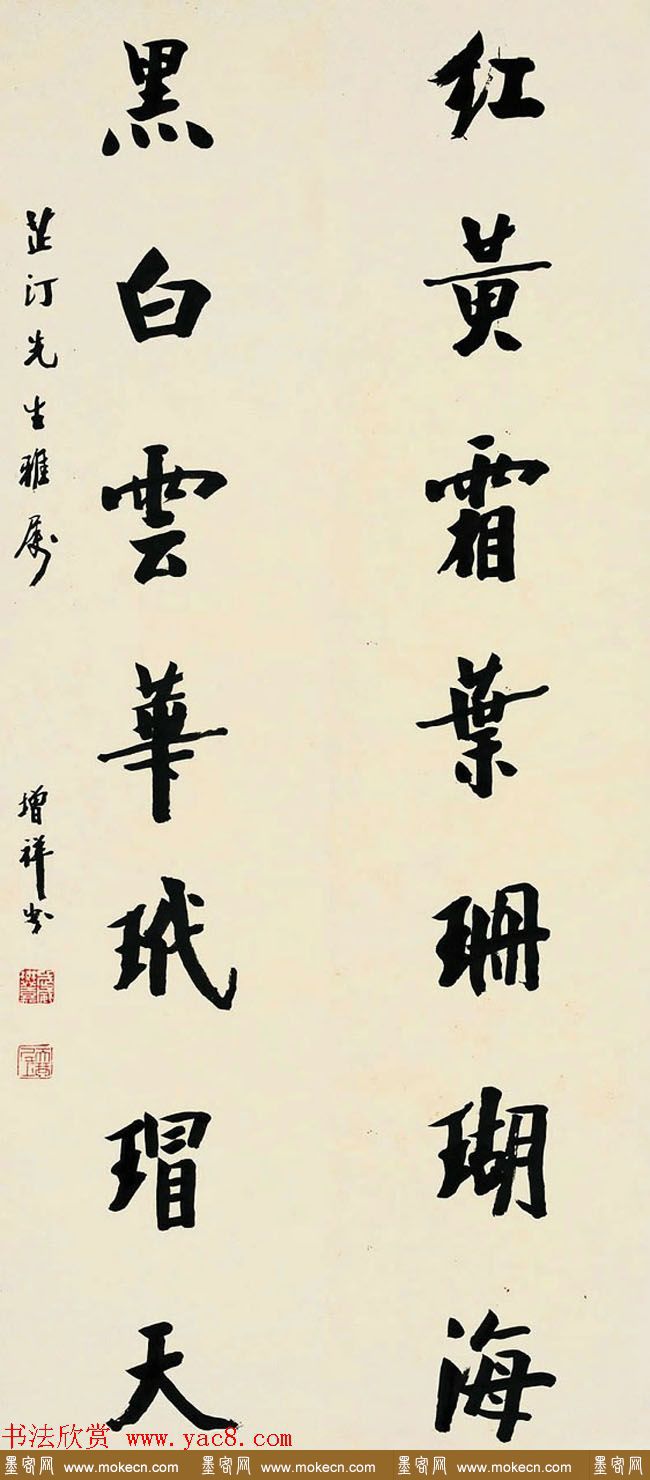 红黄霜葉珊瑚海
黑白雲華玳瑁天
芷汀先生雅属
增祥
书法欣赏 www.yac8.com
墨客网 www.mokecn.com 墨客网 www.mokecn.com 墨客网 www.mokecn.com